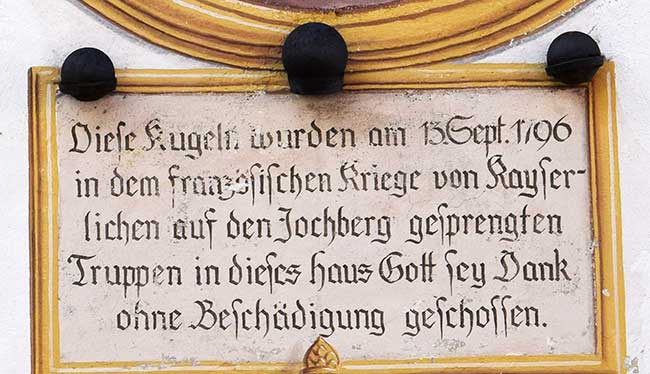 Diese Kugeln wurden am 13.Sept.1796
in dem französischen Kriege von Kayser-
lichen auf den Jochberg gesprengten
Truppen in dieses haus Gott sey Dank
ohne Beschädigung geschossen.